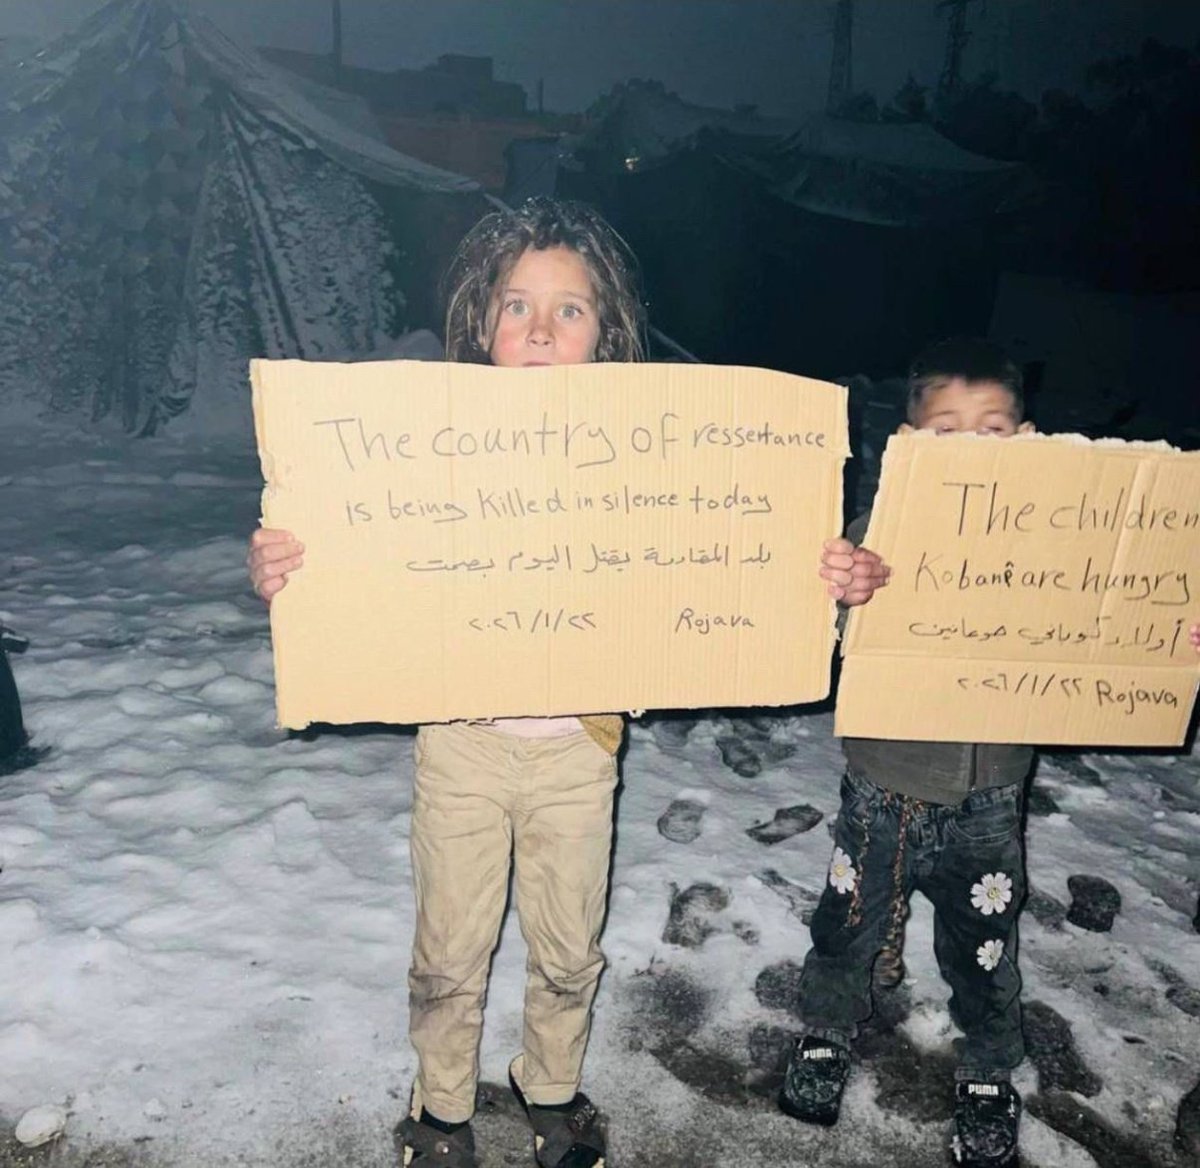 The country of ressertance
is being killed in silence today
بلد المقاومة يقتل اليوم بصمت
٢٠٢٦/١/٢٢ Rojava
The children
Kobanê are hungry
أولاد كوباني جوعانين
٢٠٢٦/١/٢٢ Rojava
PUMA
PUMA